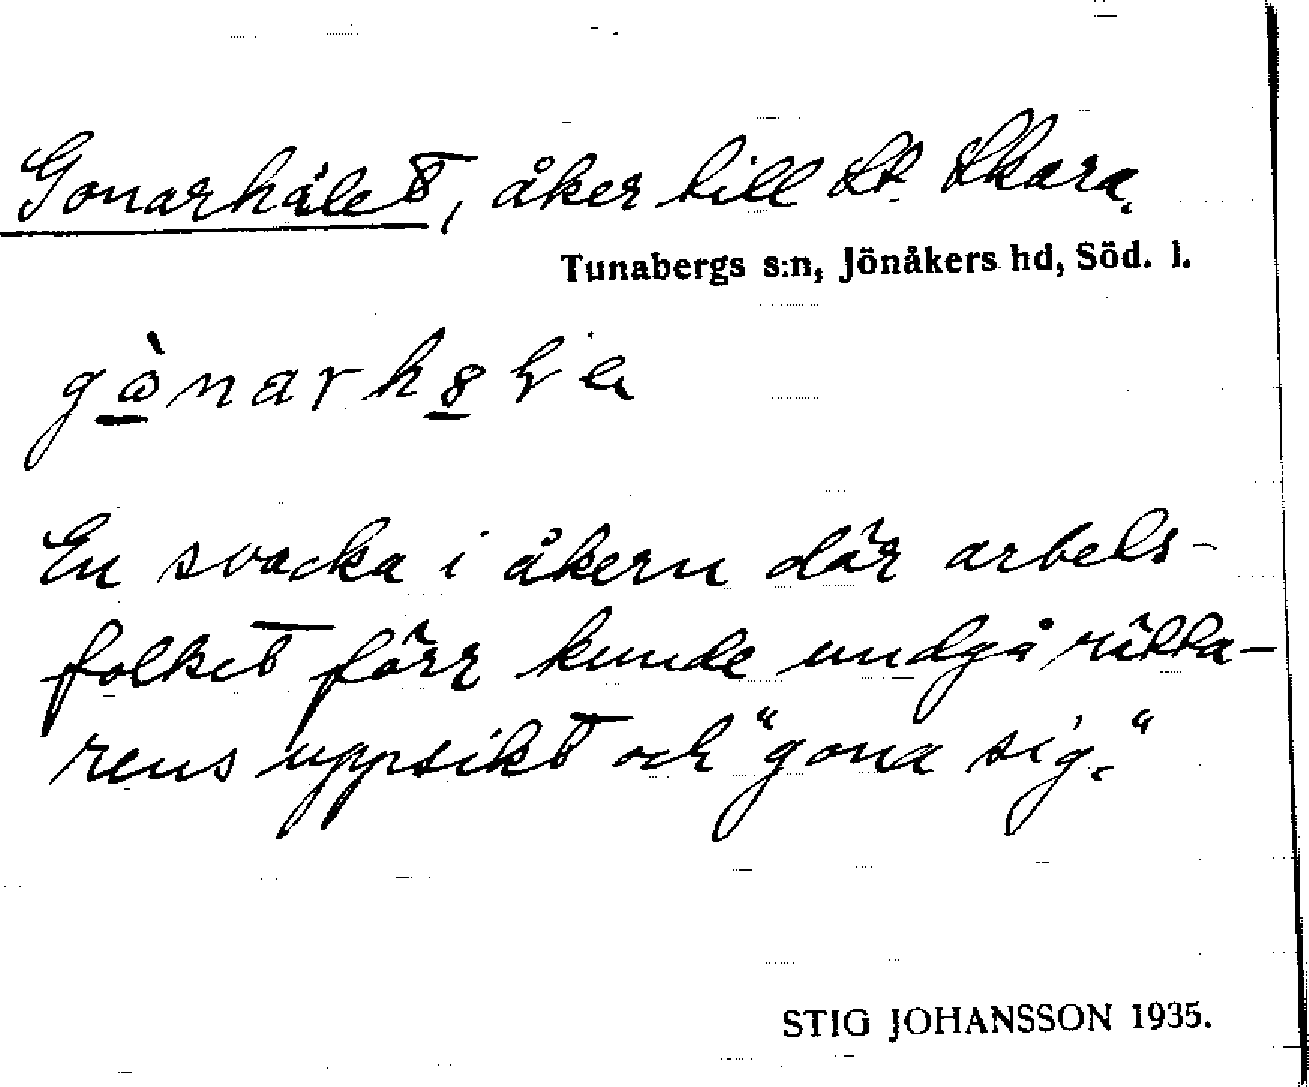 Gonarhålet, åker till St. Skara.
Tunabergs s:n, Jönåkers hd, Söd. l.
En svacka i åkern där arbets-
folket förr kunde undgå rätta-
rens uppsikt och "gona sig."
STIG JOHANSSON 1935.